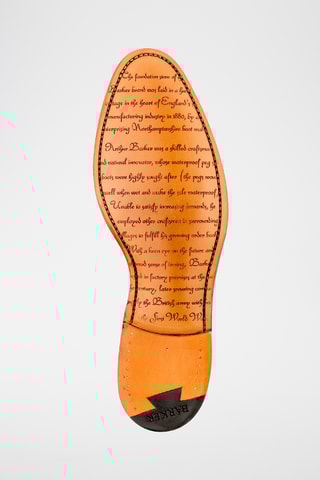 The foundation stone of the
Barker brand was laid in a
village in the heart of England's
manufacturing industry in 1880, by
enterprising Northamptonshire boot
Arthur Barker was a skilled craftsman
and rational innovator, whose waterproof peg
boots were highly sought after (the pegs
swell when wet and make the sole waterproof
Unable to satisfy increasing demands, he
employed other craftsmen in surrounding
villages to fulfill his growing order book
With a keen eye on the future and
good sense of timing, Barker
factory premises at the
century, later securing
the British army with
the First World War
BARKER